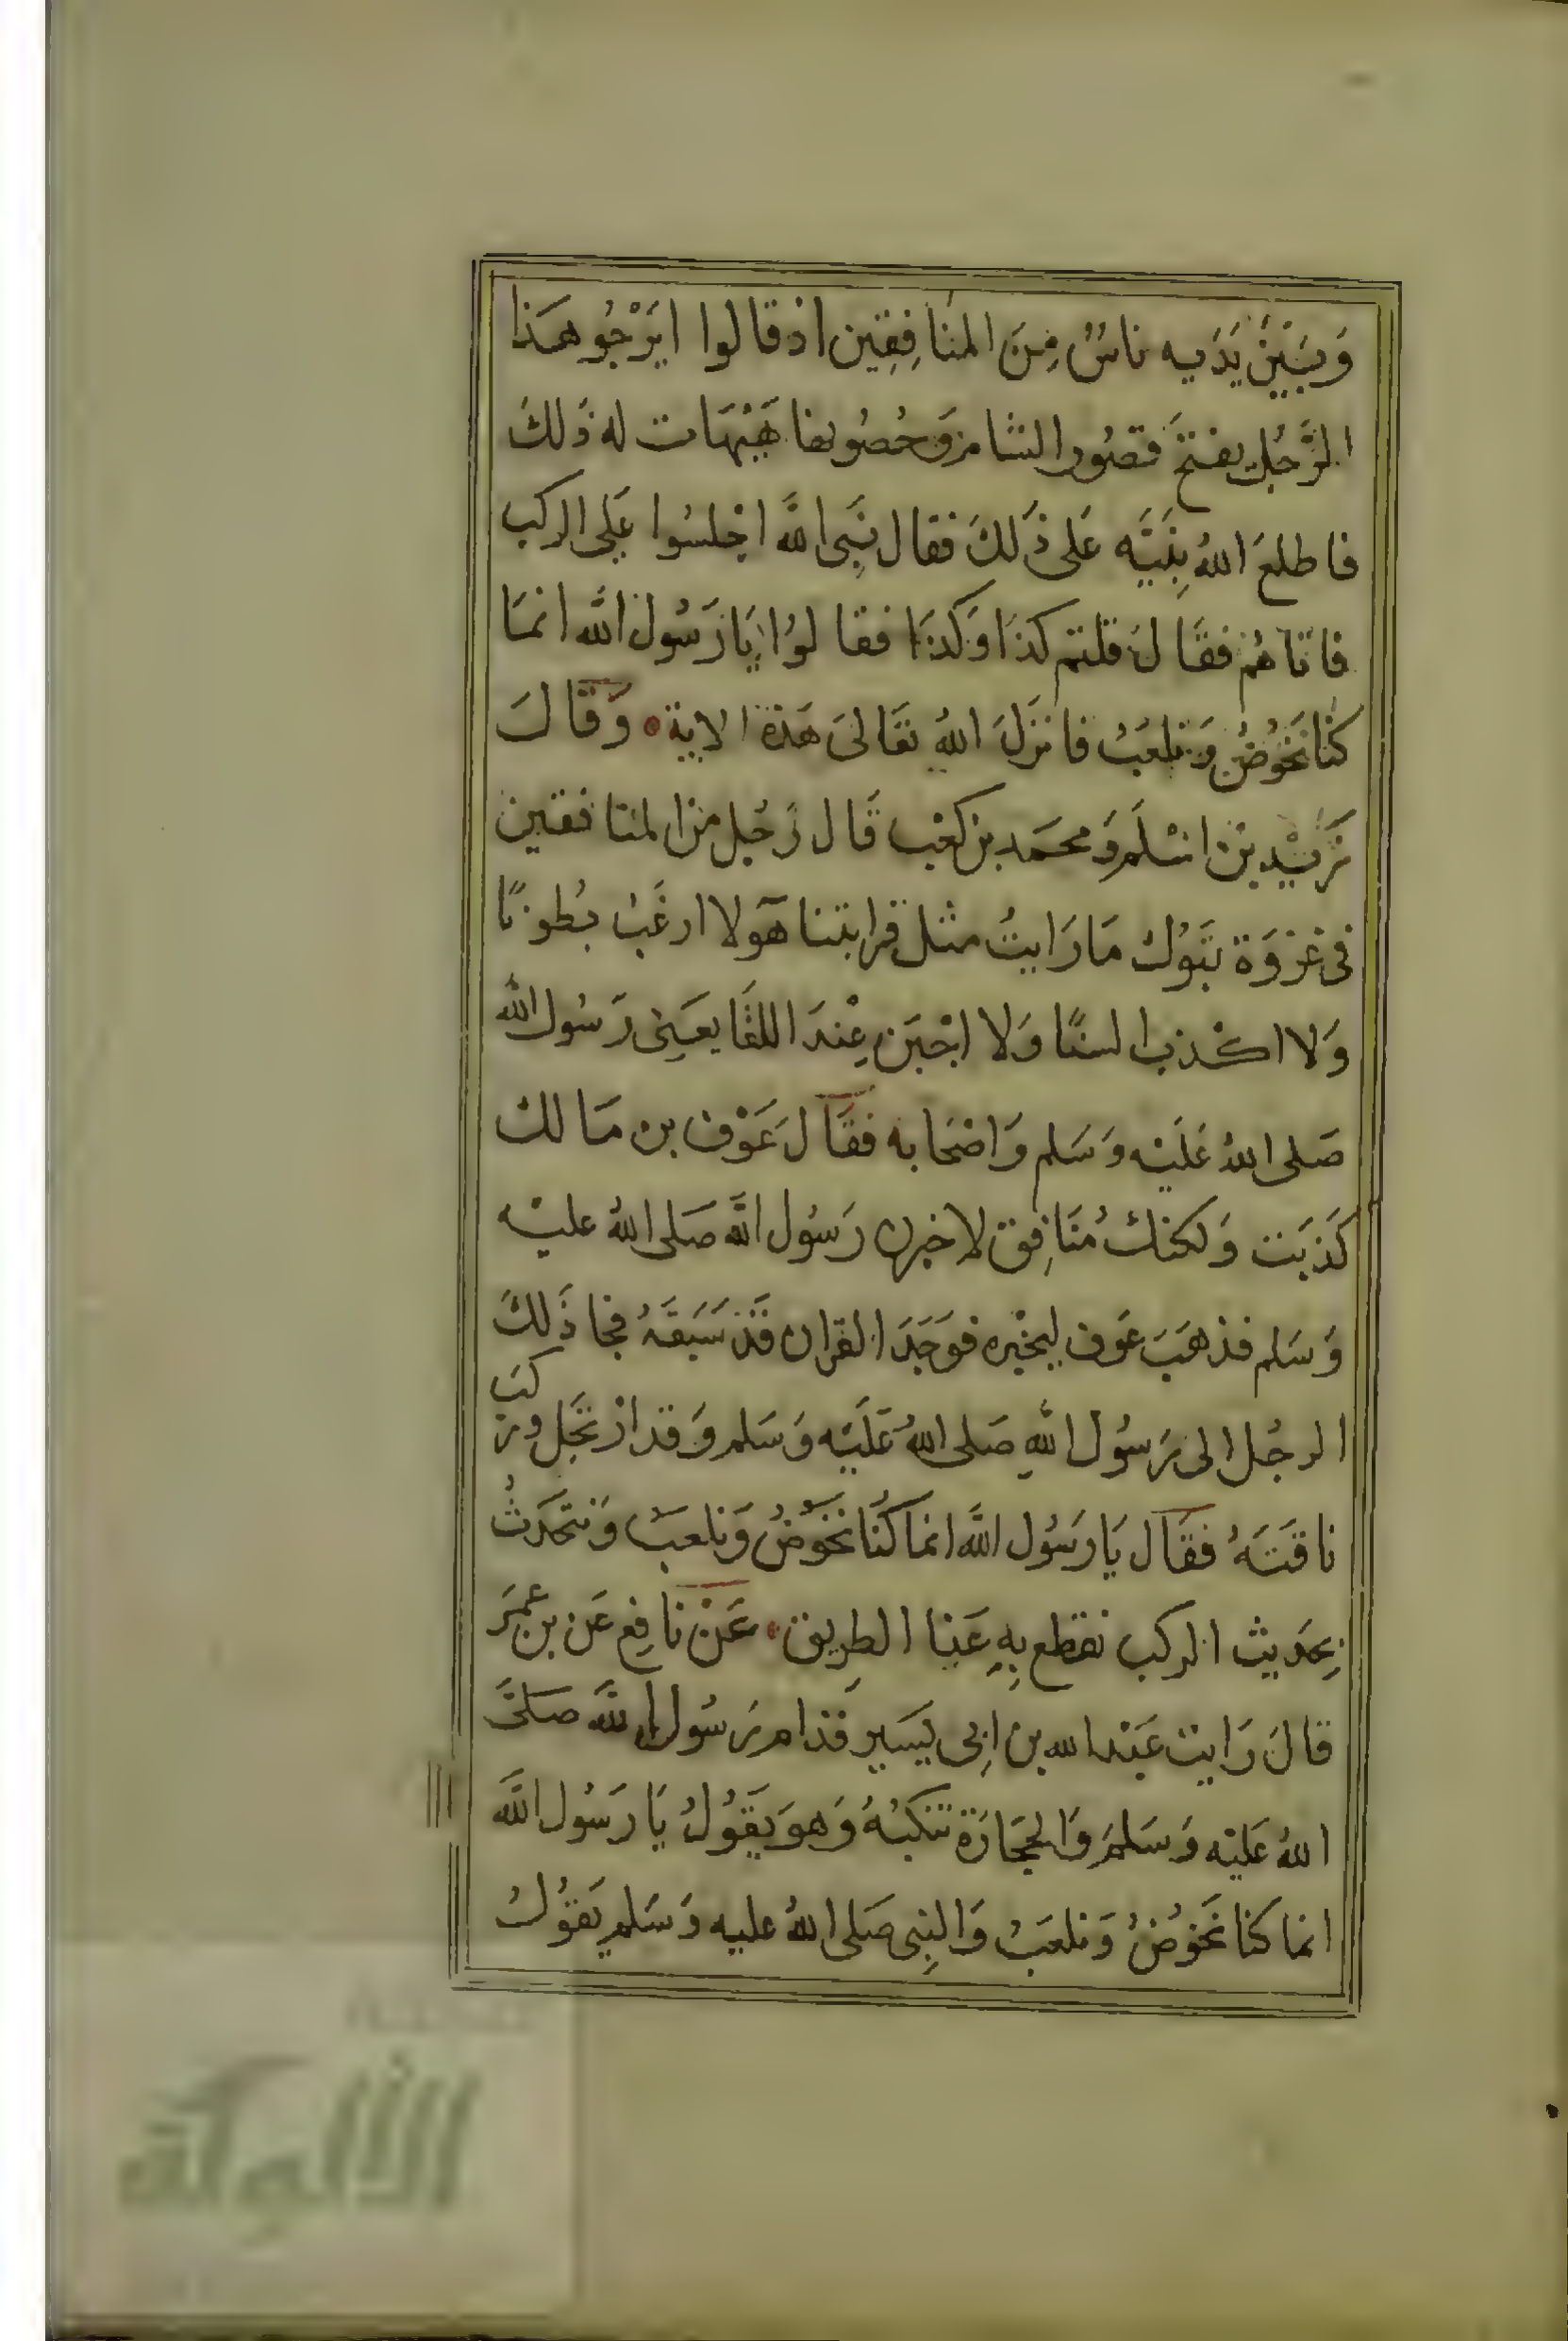 وَبَيْنَ يَدَيه ناسٌ مِنَ المنَافِقِين اذ قالوا ايَرْجُو هَذا
الرَّجُل يفتحَ قصُور الشام وَحُصُونها هَيْهَات له ذَلكَ
فاطلعَ اللهُ نِبَيَّه عَلى ذَلكَ فقال نَبِى اللَّه اجْلسُوا عَلى الركب
فاتاهُم فقَالَ قلتم كذَا وَكذَا فقالوُا يَا رَسُول اللَّه انمَا
كنَّا نَخوُضُ وَنلعَبُ فانزَلَ اللهُ تعَالىَ هَذة الاية وَقَالَ
زَيْد بْن اسْلَم وَمحمَد بن كعْب قَال رَجُل من المنافقين
فى غزوَة تبَوُك مَا رَايتُ مثل قرابتنا هَولا ارغَبُ بُطونًا
وَلا اكذب السنًا وَلا اجْبَن عِندَ اللقَا يعَنِى رَسُول الله
صَلى اللهُ عَليْه وَسَلم وَاصْحَابه فقَالَ عَوْف بن مَالك
كَذبَت وَلكنك مُنَافِق لاخبرن رَسُول اللَّه صَلى اللهُ عليْه
وَسَلم فذهَبَ عَوف ليخبْره فوَجَدَ القران قَدْ سَبَقَهُ فجا ذَلكَ
الرجُل الى رَسوُل اللهِ صَلى اللهُ عَلَيْه وَسَلم وَقد ارْتحَل وركبَ
ناقَتَهُ فقَال يَا رَسُول اللَّه انما كُنَّا نَخوُضُ وَنلعَبُ وَنتحَدثُ
بِحَديث الركب نقطع بِهِ عَنا الطِريق عَنْ نافِع عَن بن عمَر
قالَ رَايت عَبْد الله بن ابِى يَسير قدام رَسُول اللَّه صَلىَّ
اللهُ عَليْه وَسَلمَ وَالحجَارَة تنكبُهُ وَهوَ يَقوُلُ يَا رَسُول اللَّه
انما كنا نَخوُضُ وَنلعَبُ وَالنِبى صَلى اللهُ عليه وَسَلم يَقوُلُ
الألوكة